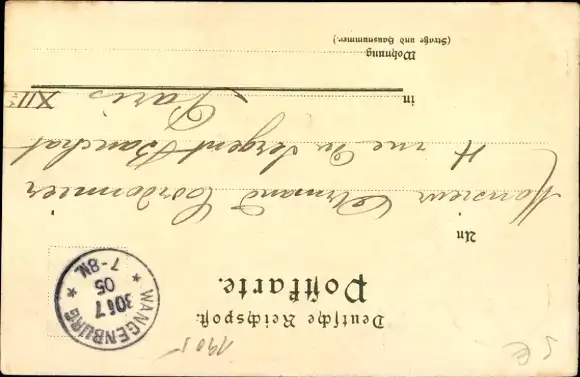 Deutsche Reichspost.
Postkarte.
1905
WANGENBURG
30/7
05
7-8N.
An
Monsieur Armand Cordonnier
4 rue du Sergent Bauchat
in Paris XIIe
Wohnung
(Straße und Hausnummer.)